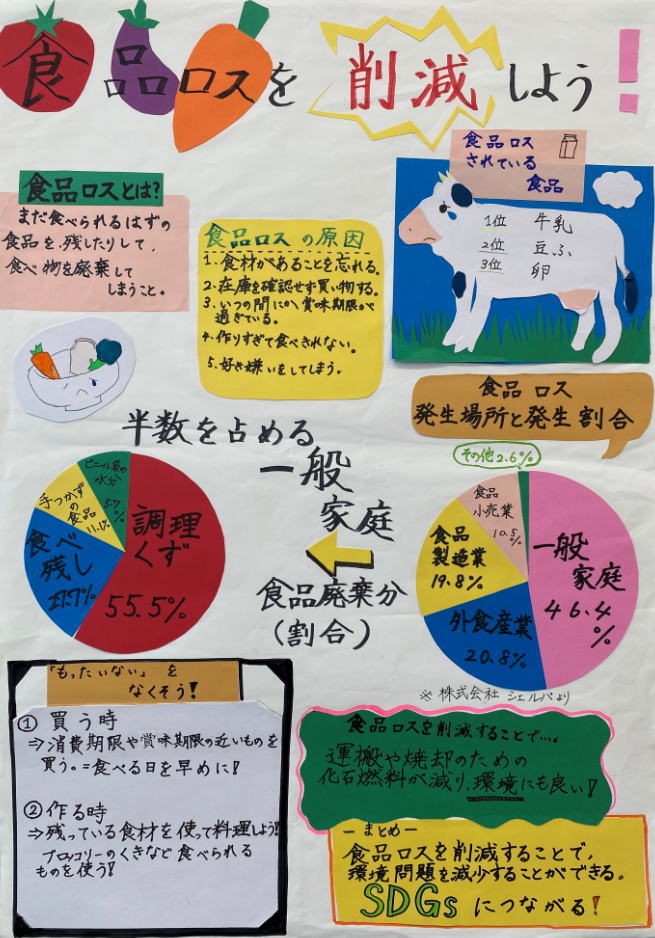 食品ロスを削減しよう!
食品ロスとは?
まだ食べられるはずの
食品を、残したりして、
食べ物を廃棄して
しまうこと。
食品ロスの原因
1、食材があることを忘れる。
2、在庫を確認せず買い物する。
3、いつの間にか賞味期限が
過ぎている。
4、作りすぎて食べきれない。
5、好き嫌いをしてしまう。
食品ロス
されている
食品
1位 牛乳
2位 豆ふ
3位 卵
食品ロス
発生場所と発生割合
その他2.6%
一般
家庭
46.4%
外食産業
20.8%
食品
製造業
19.8%
食品
小売業
10.5%
※株式会社シェルパより
半数を占める
一般
家庭
食品廃棄分
(割合)
調理
くず
55.5%
食べ
残し
27.7%
手つかず
の食品
11.1%
水分
5.7%
「もったいない」を
なくそう!
① 買う時
⇒消費期限や賞味期限の近いものを
買う。=食べる日を早めに!
② 作る時
⇒残っている食材を使って料理しよう!
ブロッコリーのくきなど食べられる
ものを使う!
食品ロスを削減することで…。
運搬や焼却のための
化石燃料が減り、環境にも良い!
ーまとめー
食品ロスを削減することで、
環境問題を減少することができる。
SDGsにつながる!